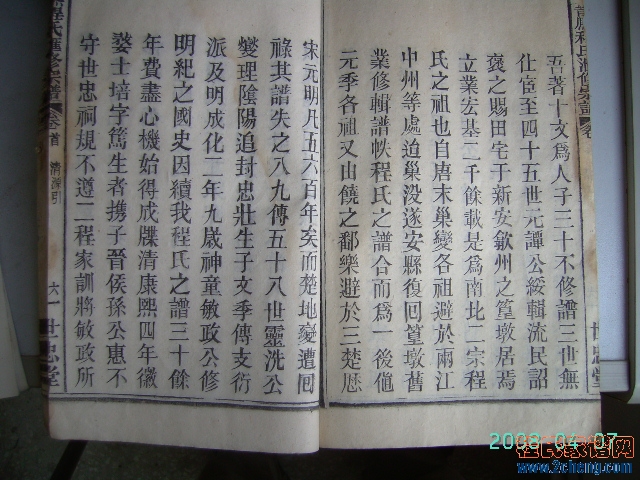 吾著十文爲人子三十不修譜三世無
仕宦至四十五世元譚公綏輯流民詔
褒之賜田宅于新安歙州之篁墩居焉
立業宏基二千餘載是爲南北二宗程
氏之祖也自唐末巢變各祖避於兩江
中州等處迨巢没遂安縣復回篁墩舊
業修輯譜帙程氏之譜合而爲一後值
元季各祖又由饒之鄱樂避於三楚歷
宋元明凡五六百年矣而楚地變遭回
祿其譜失之八九傳五十八世靈洗公
燮理陰陽追封忠壯生子文季傳支衍
派及明成化二年九歲神童敏政公修
明紀之國史因續我程氏之譜三十餘
年費盡心機始得成牒清康熙四年徽
婺士培字篤生者携子晉侯孫公惠不
守世忠祠規不遵二程家訓將敏政所
程氏滙修宗譜 卷首 清源引 六一 世忠堂
程氏滙修宗譜 卷 世忠堂
2008 04 07
www.zchang.com